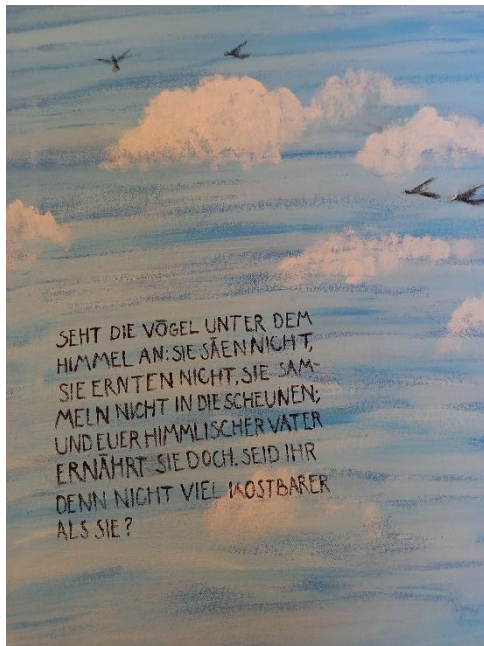 SEHT DIE VÖGEL UNTER DEM
HIMMEL AN: SIE SÄEN NICHT,
SIE ERNTEN NICHT, SIE SAM-
MELN NICHT IN DIE SCHEUNEN;
UND EUER HIMMLISCHER VATER
ERNÄHRT SIE DOCH. SEID IHR
DENN NICHT VIEL KOSTBARER
ALS SIE?